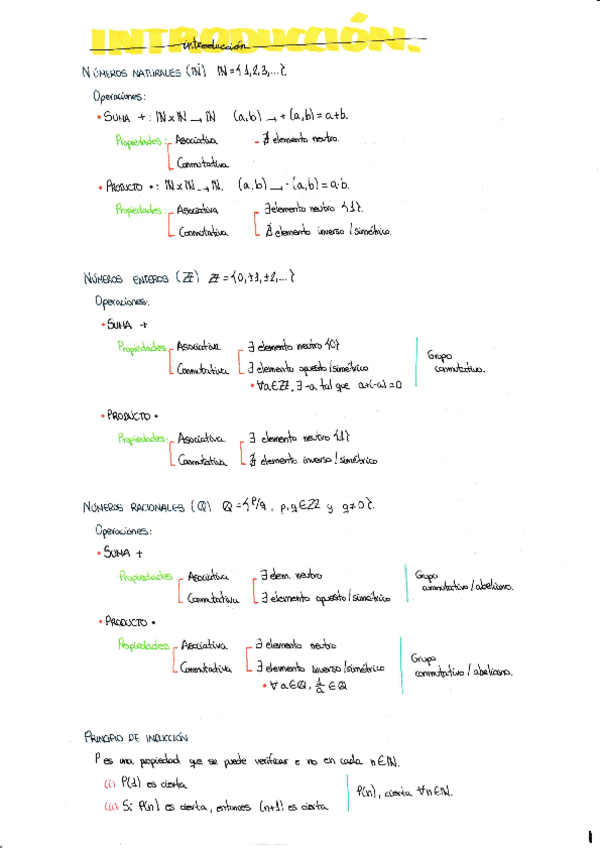 INTRODUCCIÓN.
introducción
NÚMEROS NATURALES (ℕ) ℕ={1,2,3,...}.
Operaciones:
• SUMA + : ℕxℕ → ℕ (a,b) → +(a,b)=a+b.
Propiedades: Asociativa - ∄ elemento neutro.
Conmutativa
• PRODUCTO • : ℕxℕ → ℕ. (a,b) → ·(a,b)=a·b.
Propiedades: Asociativa ∃elemento neutro {1}.
Conmutativa ∄ elemento inverso/simétrico.
NÚMEROS ENTEROS (ℤ) ℤ={0,±1,±2,...}
Operaciones:
• SUMA +
Propiedades Asociativa ∃ elemento neutro {0}
Conmutativa ∃ elemento opuesto/simétrico
• ∀a∈ℤ, ∃ -a tal que a+(-a)=0
Grupo
conmutativo.
• PRODUCTO •
Propiedades: Asociativa ∃ elemento neutro {1}
Conmutativa ∄ elemento inverso/simétrico
NÚMEROS RACIONALES (ℚ) ℚ={p/q, p,q∈ℤ y q≠0}.
Operaciones:
• SUMA +
Propiedades Asociativa ∃ elem. neutro
Conmutativa ∃ elemento opuesto/simétrico
Grupo
conmutativo/abeliano.
• PRODUCTO •
Propiedades Asociativa ∃ elemento neutro
Conmutativa ∃ elemento inverso/simétrico
• ∀a∈ℚ, 1/a ∈ℚ
Grupo
conmutativo/abeliano.
PRINCIPIO DE INDUCCIÓN
P es una propiedad que se puede verificar o no en cada n∈ℕ.
(i) P(1) es cierta
(ii) Si P(n) es cierta, entonces (n+1) es cierta
P(n), cierta ∀n∈ℕ.
1